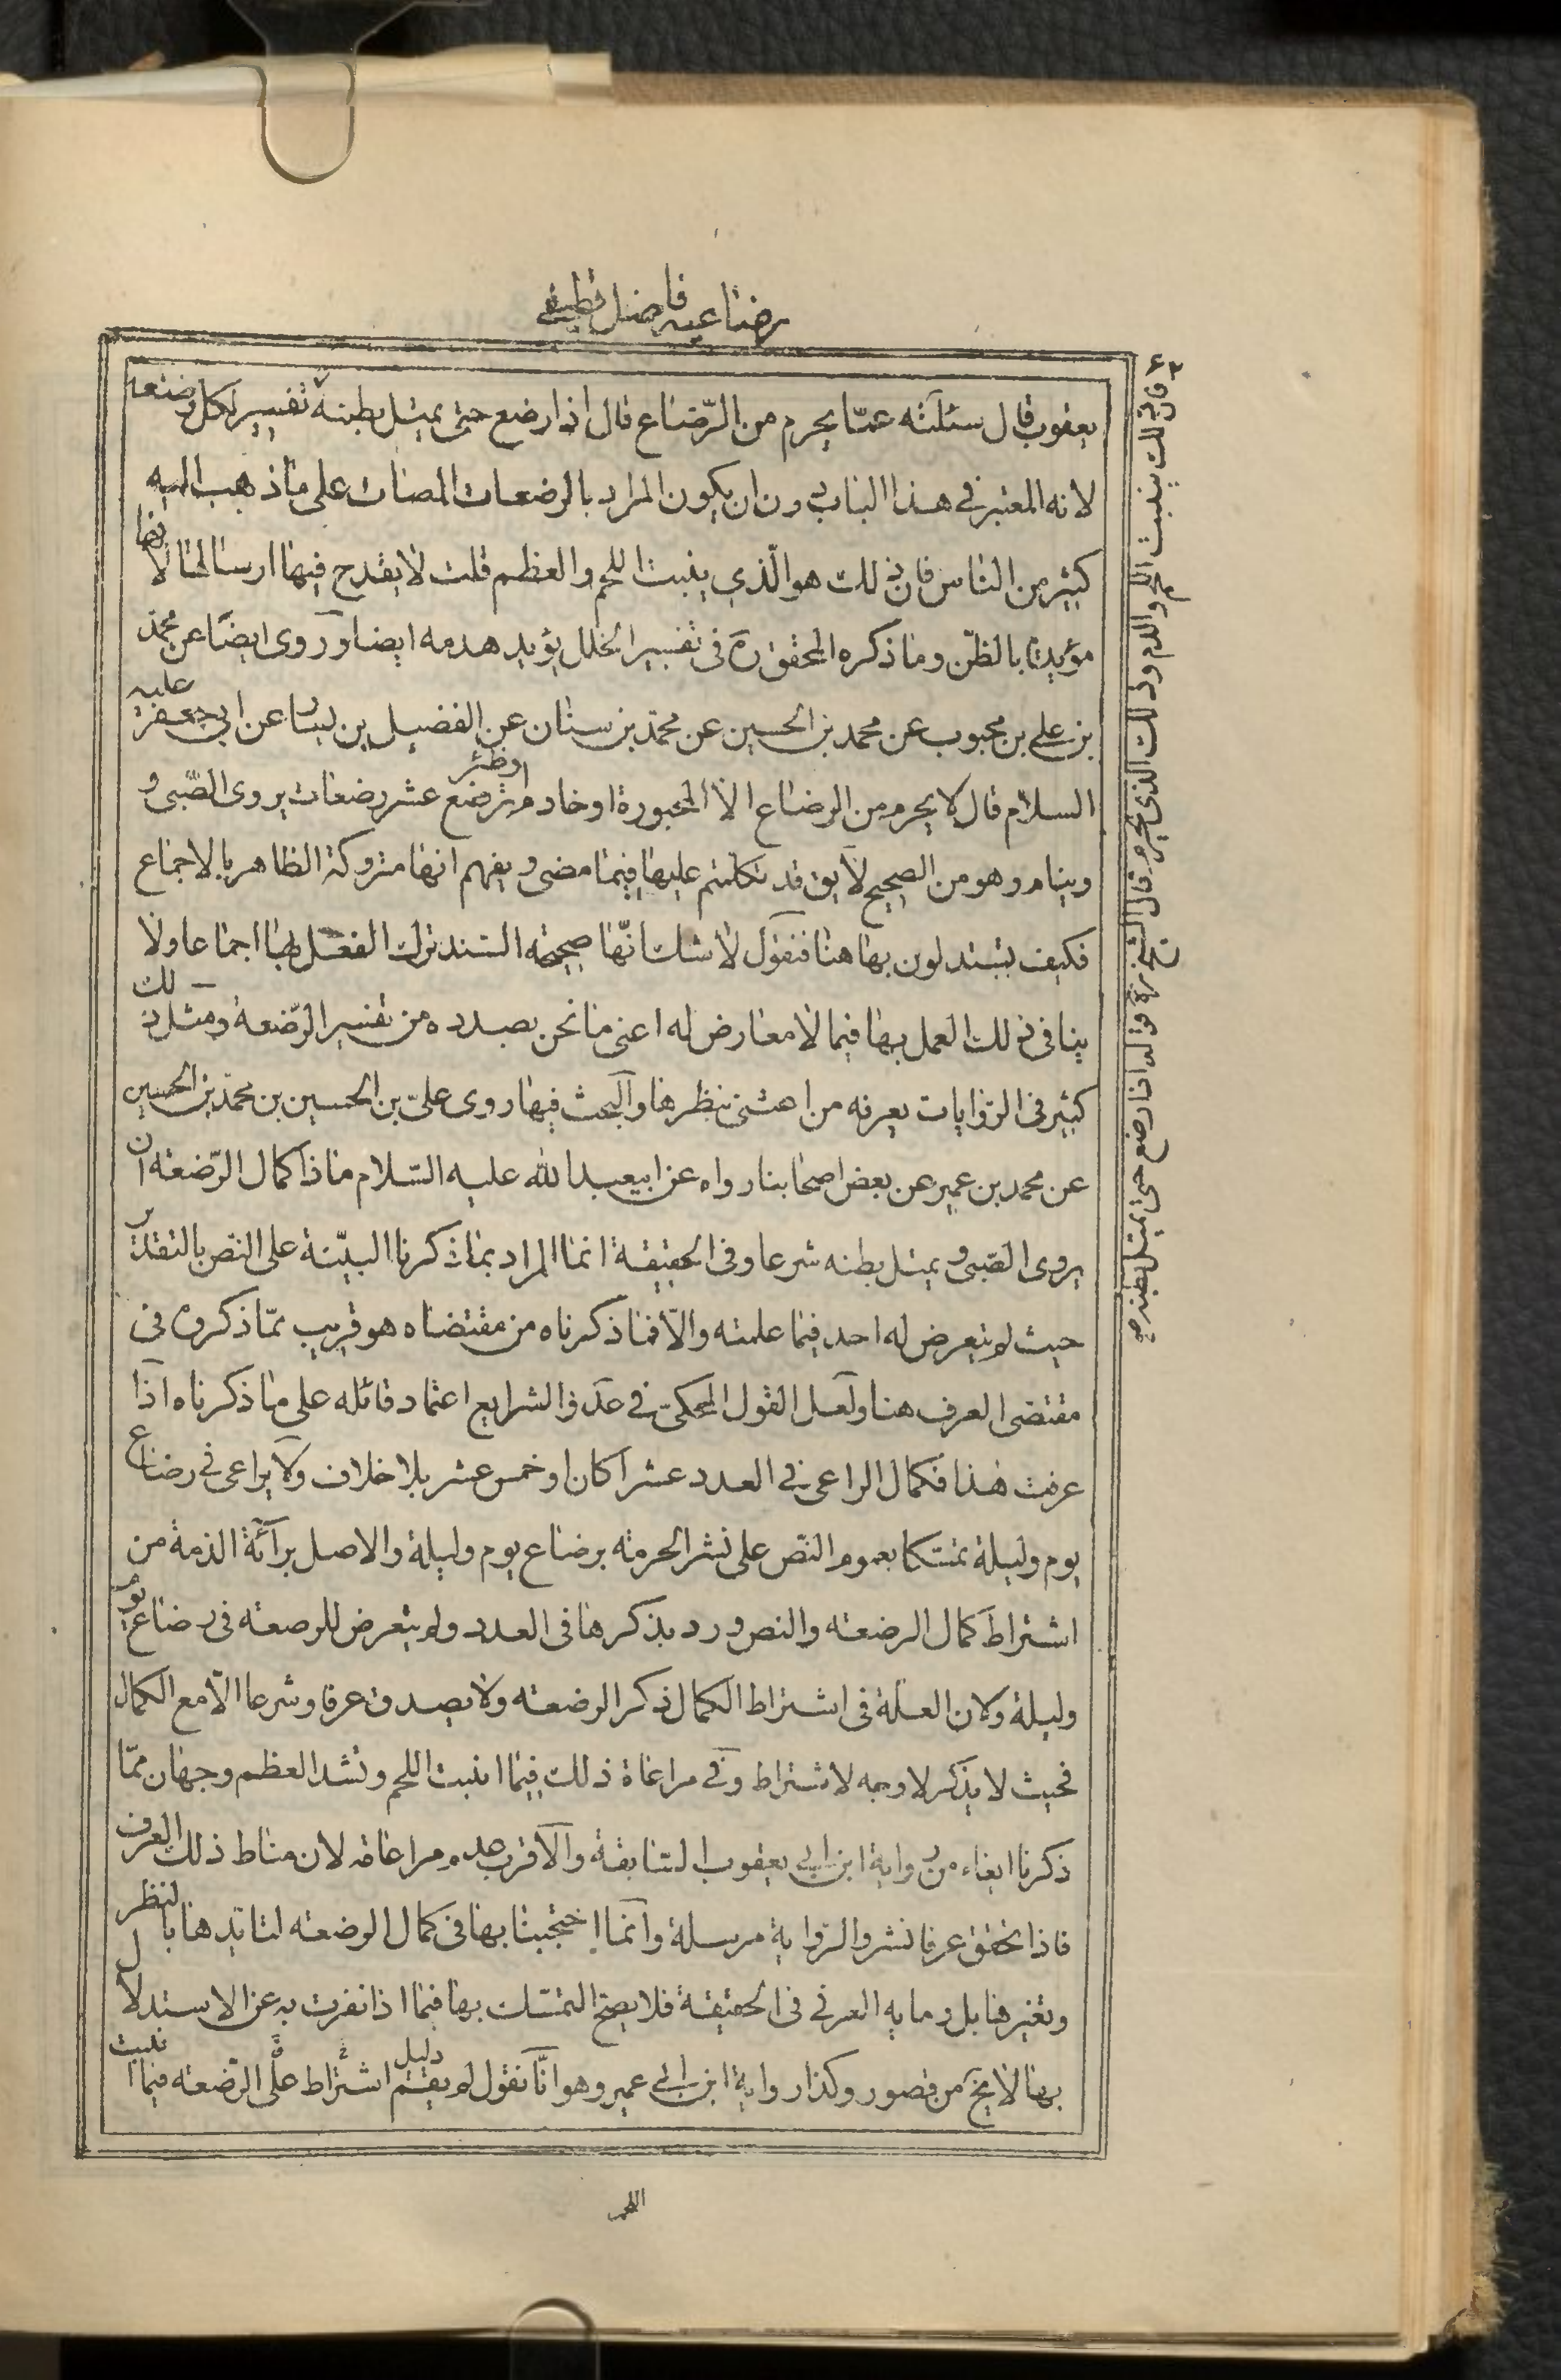 رضاعيه فاضل قطيفى
٤٢
يعقوب قال سئلته عمّا يحرم من الرّضاع قال اذا رضع حتى يمتلى بطنه تفسير لكل رضعه
لانه المعتبر فى هذا الباب دون ان يكون المراد بالرضعات المصات على ما ذهب اليه
كثير من الناس فان ذلك هو الّذي ينبت اللحم والعظم قلت لا يقدح فيها ارسالها لانها
مؤيدة بالظنّ وما ذكره المحقق ره فى تفسير الخلل يؤيد هدمه ايضا وروى ايضا عن محمّد
بن على بن محبوب عن محمد بن الحسين عن محمّد بن سنان عن الفضيل بن يسار عن ابى جعفر عليه
السلام قال لا يحرم من الرضاع الا المخبورة او خادم او ظئر ترضع عشر رضعات يروى الصّبى و
وينام وهو من الصحيح لا يق قد تكلمتم عليها فيما مضى ويفهم انها متروكة الظاهر بالاجماع
فكيف تستدلون بها هنا فنقول لا شك انّها صحيحه السند ترك الفعل بها اجماعا ولا
ينافى ذلك العمل بها فيما لا معارض له اعنى ما نحن بصدده من تفسير الرّضعة ومثل ذلك
كثير فى الرّوايات يعرفه من اهتنى بنظرها والبحث فيها روى علىّ بن الحسين بن محمّد بن الحسين
عن محمد بن عمير عن بعض اصحابنا رواه عن ابيعبد الله عليه السّلام ماذا كمال الرّضعه ان
يروى الصّبى ويمتلى بطنه شرعا وفى الحقيقة انما المراد بما ذكرنا البيّنة على النص بالتقدير
حيث لم يتعرض له احد فيما علمته والّا فما ذكرناه من مقتضاه هو قريب ممّا ذكروه فى
مقتضى العرف هنا ولعل القول المحكىّ فى عدّ و الشرايع اعتماد قائله على ما ذكرناه اذا
عرفت هذا فكمال الراعى فى العدد عشرا كان او خمس عشر بلا خلاف ولا يراعى فى رضاع
يوم وليلة تمسّكا بعموم النصّ على نشر الحرمة برضاع يوم وليلة والاصل برائة الذمة من
اشتراط كمال الرضعه والنص ورد بذكرها فى العدد ولم يتعرض للرضعه فى رضاع يوم
وليلة ولان العلّة فى اشتراط الكمال ذكر الرضعه ولا يصدق عرفا وشرعا الّا مع الكمال
فحيث لا يذكر لا وجه لاشتراط وفى مراعاة ذلك فيما انبت اللحم وشد العظم وجهان ممّا
ذكرنا ايفاء من رواية ابن ابى يعقوب السّابقة والاقرب عدم مراعاته لان مناط ذلك العرف
فاذا تحقق عرفا نشر والرّواية مرسلة وانما احتججنا بها فى كمال الرضعه لتايّدها بالنظر
وتغيرها بل وما به العرفى فى الحقيقة فلا يصحّ التمسّك بها فيما اذا نفرت به عن الاستدلال
بها لا يخ من قصور وكذا رواية ابن ابى عمير وهو انّا نقول لم يقم دليل اشتراط على الرّضعه فيما انبت
اللحم
فان ذلك ينبت اللحم والدم وذلك الذى يحرم قال الشيخ ره قوله اذا رضع حتى يمتلى بطنه صح